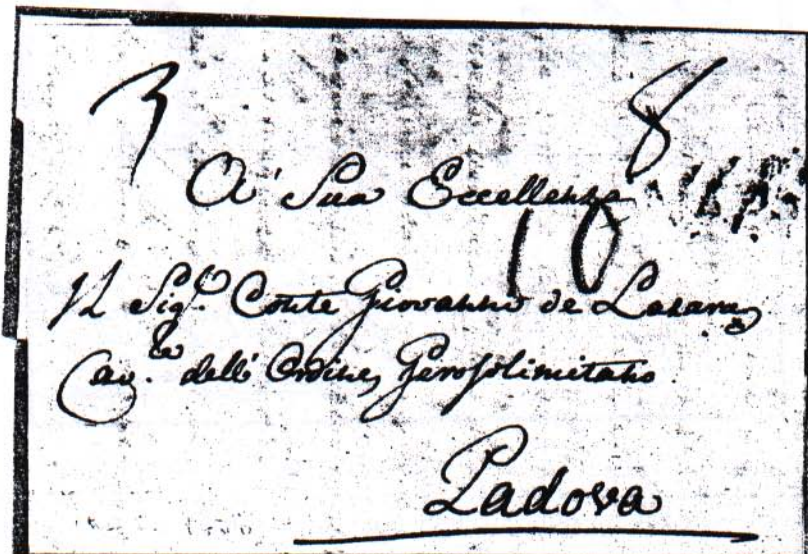 3 8
A' Sua Eccellenza
10
Il Sig.r Conte Giovanni de Lazara
Cav.re dell' Ordine Gerosolimitano
Padova